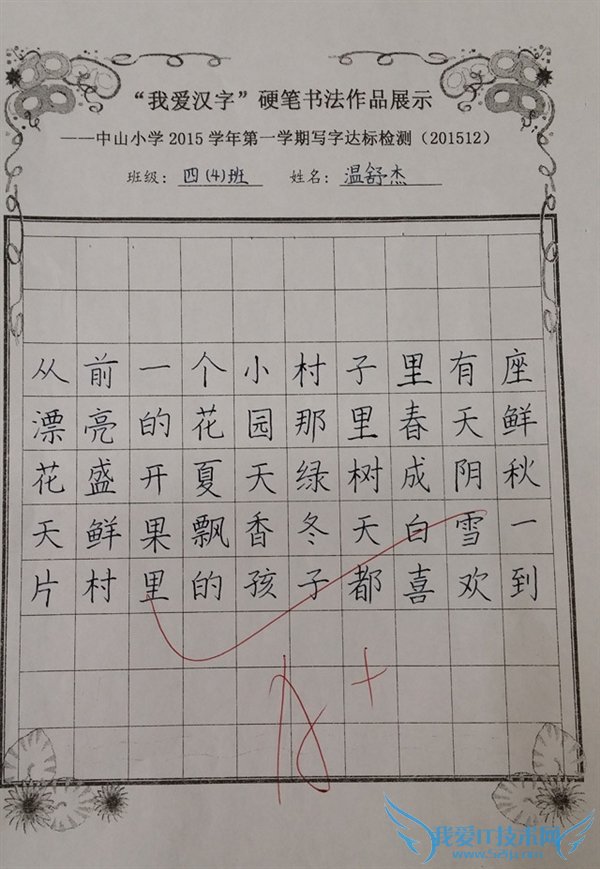 “我爱汉字”硬笔书法作品展示
——中山小学2015学年第一学期写字达标检测（201512）
班级：四(4)班 姓名：温舒杰
从前一个小村子里有座
漂亮的花园那里春天鲜
花盛开夏天绿树成阴秋
天鲜果飘香冬天白雪一
片村里的孩子都喜欢到
A+
我爱IT技术网
www.52ij.com